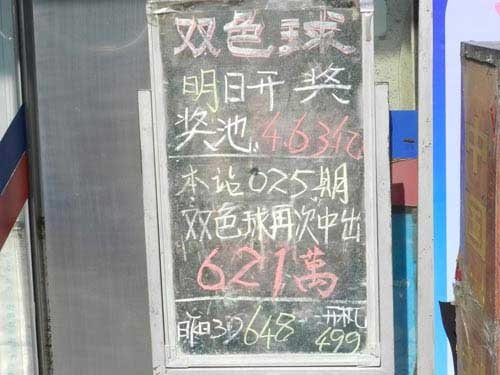 双色球
明日开奖
奖池4.63亿
本站025期
双色球再次中出
621萬
昨日3D648 开机
499